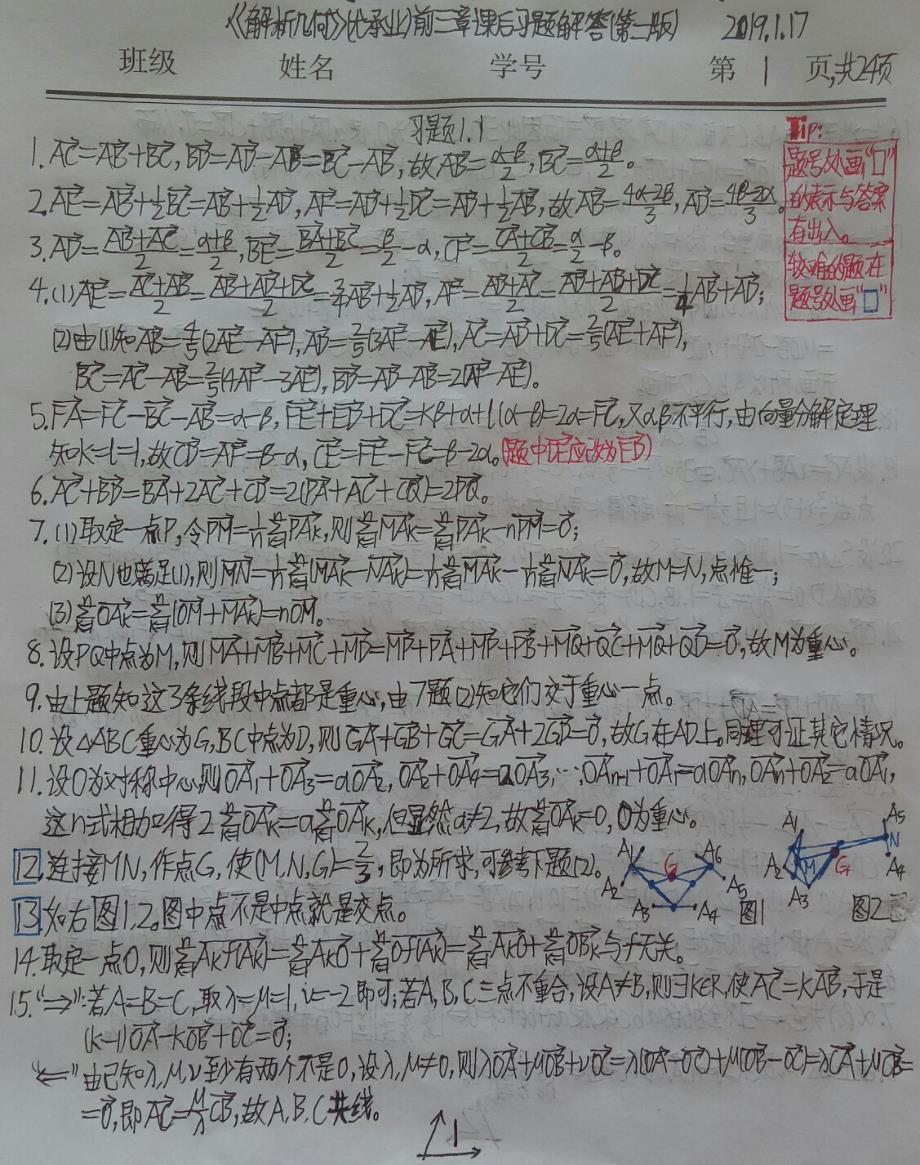 《解析几何》(尤承业)前三章课后习题解答(第二版) 2019.1.17
班级 姓名 学号 第 1 页,共24页
习题1.1
Tip:
题号处画“□”
的表示与答案
有出入。
较难的题在
题号处画“□”
1. AC=AB+BC, BD=AD-AB=BC-AB, 故AB=(α-β)/2, BC=(α+β)/2。
2. AE=AB+1/2BC=AB+1/2AD, AF=AD+1/2DC=AD+1/2AB, 故AB=(4α-2β)/3, AD=(4β-2α)/3。
3. AD=(AB+AC)/2=(α+β)/2, BE=(BA+BC)/2=β/2-α, CF=(CA+CB)/2=α/2-β。
4. (1)AE=(AC+AB)/2=(AB+AD+DC)/2=3/4AB+1/2AD, AF=(AD+AC)/2=(AD+AD+DC)/2=1/4AB+AD;
(2)由(1)知AB=4/5(2AE-AF), AD=2/5(3AF-AE), AC=AD+DC=2/5(AE+AF),
BC=AC-AB=2/5(4AF-3AE), BD=AD-AB=2(AF-AE)。
5. FA=FC-BC-AB=α-β, FE+ED+DC=kβ+α+l(α-β)=2α=FC, 又α,β不平行, 由向量分解定理
知k=l=1, 故CD=AF=β-α, CE=FE-FC=β-2α。(题中DE应改为ED)
6. AC+BD=BA+2AC+CD=2(PA+AC+CQ)=2PQ。
7. (1)取定一点P, 令PM=1/n∑PAk, 则∑MAk=∑PAk-nPM=0;
(2)设N也满足(1), 则MN=1/n∑(MAk-NAk)=1/n∑MAk-1/n∑NAk=0, 故M=N, 点惟一;
(3)∑OAk=∑(OM+MAk)=nOM。
8. 设PQ中点为M, 则MA+MB+MC+MD=MP+PA+MP+PB+MQ+QC+MQ+QD=0, 故M为重心。
9. 由上题知这3条线段中点都是重心, 由7题(2)知它们交于重心一点。
10. 设△ABC重心为G, BC中点为D, 则GA+GB+GC=GA+2GD=0, 故G在AD上。同理可证其它情况。
11. 设O为对称中心, 则OA1+OA3=aOA2, OA2+OA4=aOA3, …, OAn-1+OA1=aOAn, OAn+OA2=aOA1,
这n式相加得2∑OAk=a∑OAk, 但显然a≠2, 故∑OAk=0, O为重心。
12. 连接MN, 作点G, 使(M,N,G)=2/3, 即为所求, 可参考下题(2)。
13. 如右图1,2。图中点不是中点就是交点。
A1 A2 A3 A4 A5 A6 G 图1
A1 A2 A3 A4 A5 M G N 图2
14. 取定一点O, 则∑Akf(Ak)=∑AkO+∑Of(Ak)=∑AkO+∑OBk与f无关。
15. “⇒”:若A=B=C, 取λ=μ=1, ν=-2即可;若A,B,C三点不重合, 设A≠B, 则∃k∈R, 使AC=kAB, 于是
(k-1)OA-kOB+OC=0;
“⇐”由已知λ,μ,ν至少有两个不是0, 设λ,μ≠0, 则λOA+μOB+νOC=λ(OA-OC)+μ(OB-OC)=λCA+μCB=
=0, 即AC=μ/λCB, 故A,B,C共线。
1